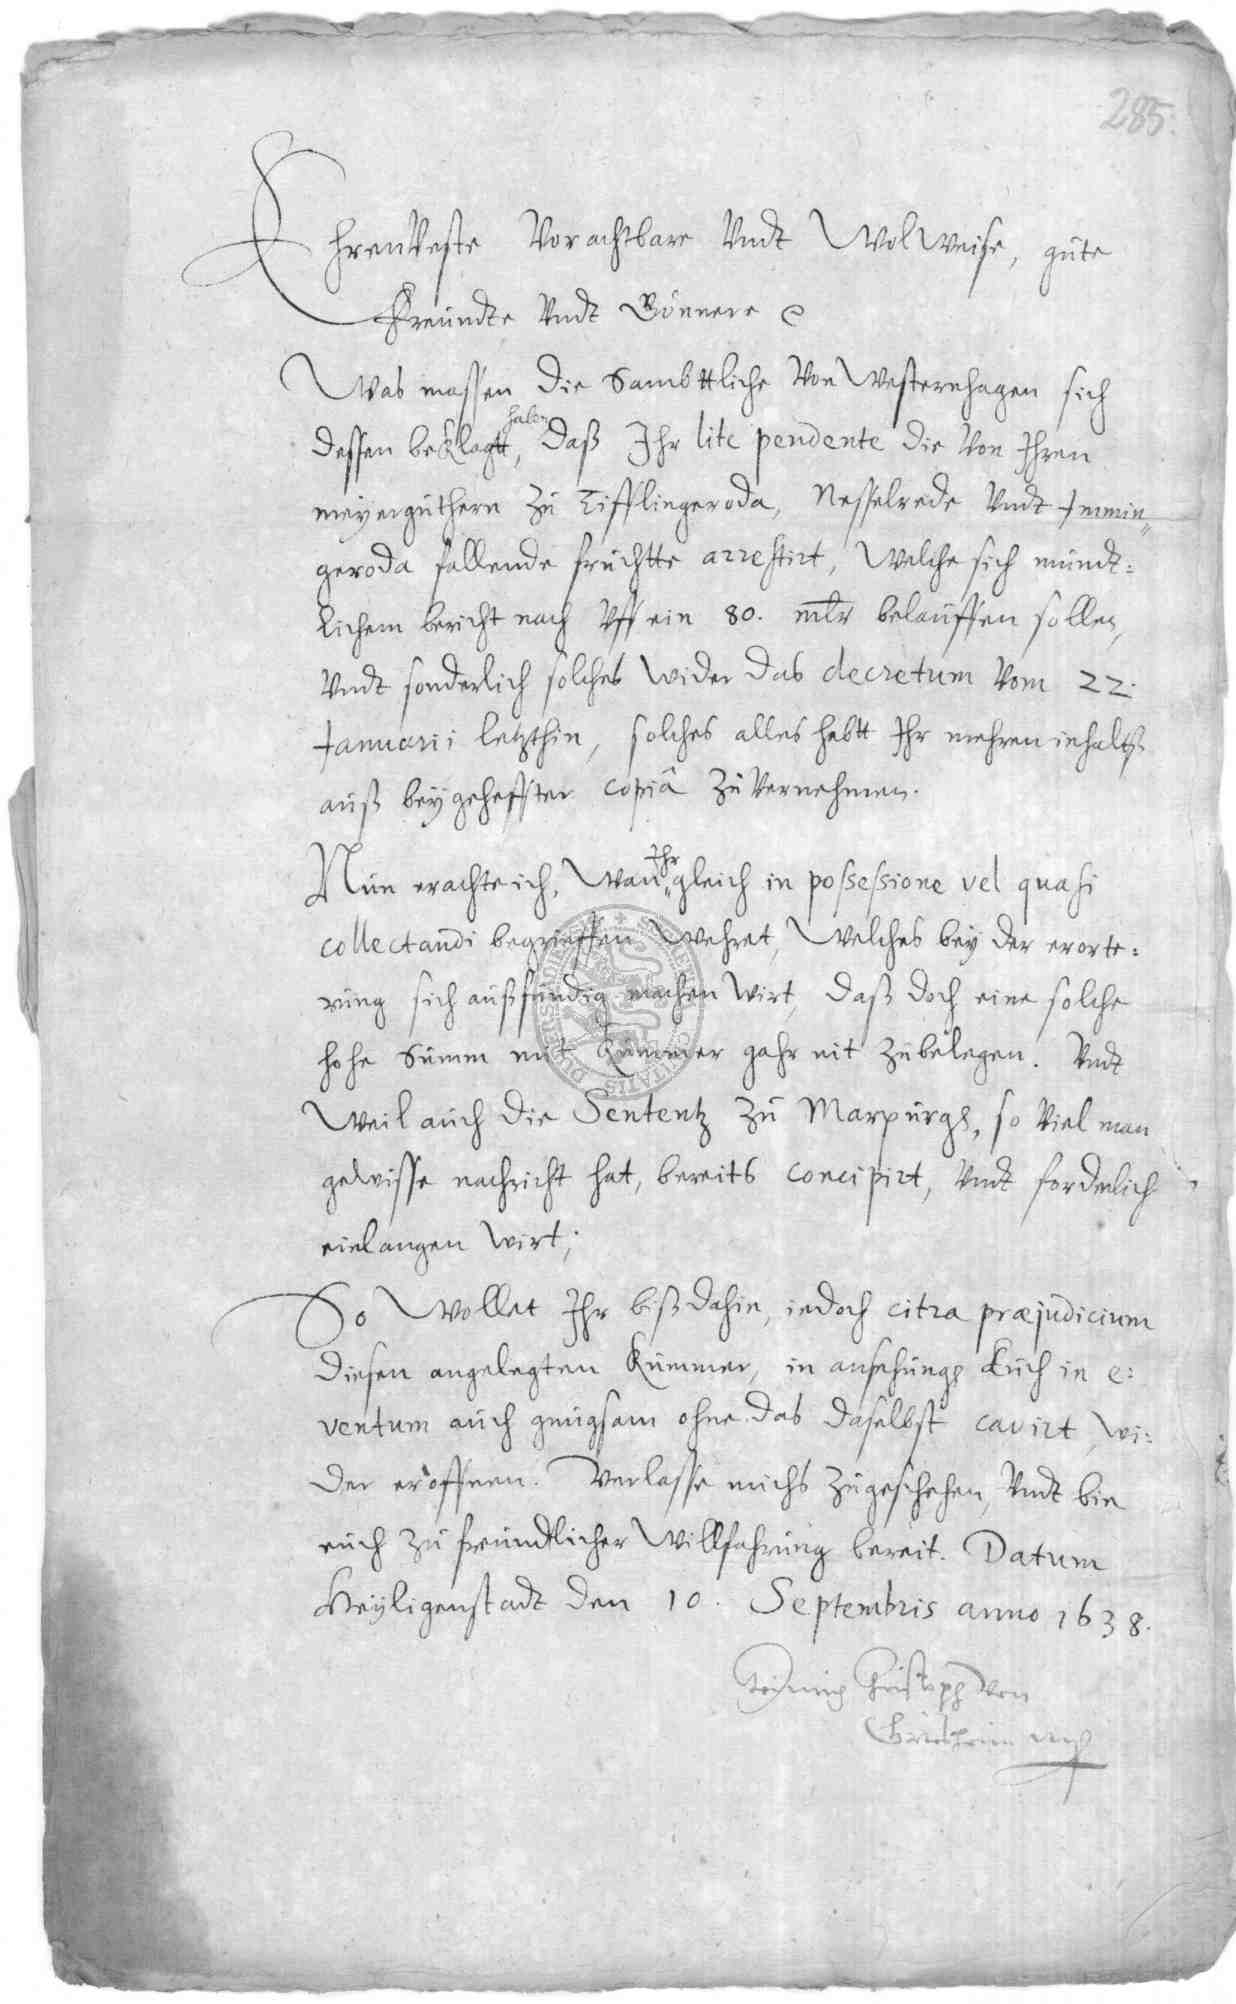 285.
EhrenVeste Vorachtbare Vndt WolWeise, gute
Freundte Vndt Gönnere
Was massen die Sambttliche Von Westernhagen sich
dessen beklagtt haben, daß Ihr lite pendente die Von Ihren
meyerguthern zu Tifflingeroda, Nesselrede Vndt Immin„
geroda fallende fruchtte arrestirt, Welche sich mundt:
lichem bericht nach Vff ein 80. mlr belauffen sollen,
Vndt sonderlich solches wider das decretum Vom 22.
Januarii letzthin, solches alles habtt Ihr mehren inhalts
auß beygehefften copiâ zu Vernehmen.
Nun erachte ich, Wan Ihr gleich in possessione vel quasi
collectandi begrieffen Wehret, Welches bey der erorte:
rung sich außfundig machen wirt, daß doch eine solche
hohe Summ mit Kummer gahr nit zubelegen. Vndt
Weil auch die Sententz zu Marpurgk, so Viel man
gewisse nachricht hat, bereits concipirt, Vndt forderlich
einlangen wirt;
So Wollet Ihr biß dahin, iedoch citra præjudicium
diesen angelegten Kummer, in ansehung Euch in e:
ventum auch gnugsam ohne das daselbst cavirt, wi:
der eröffnen. Verlasse michs zugeschehen, Vndt bin
euch zu freundtlicher Willfahrung bereit. Datum
Heyligenstadt den 10. Septembris anno 1638.
Christoph von